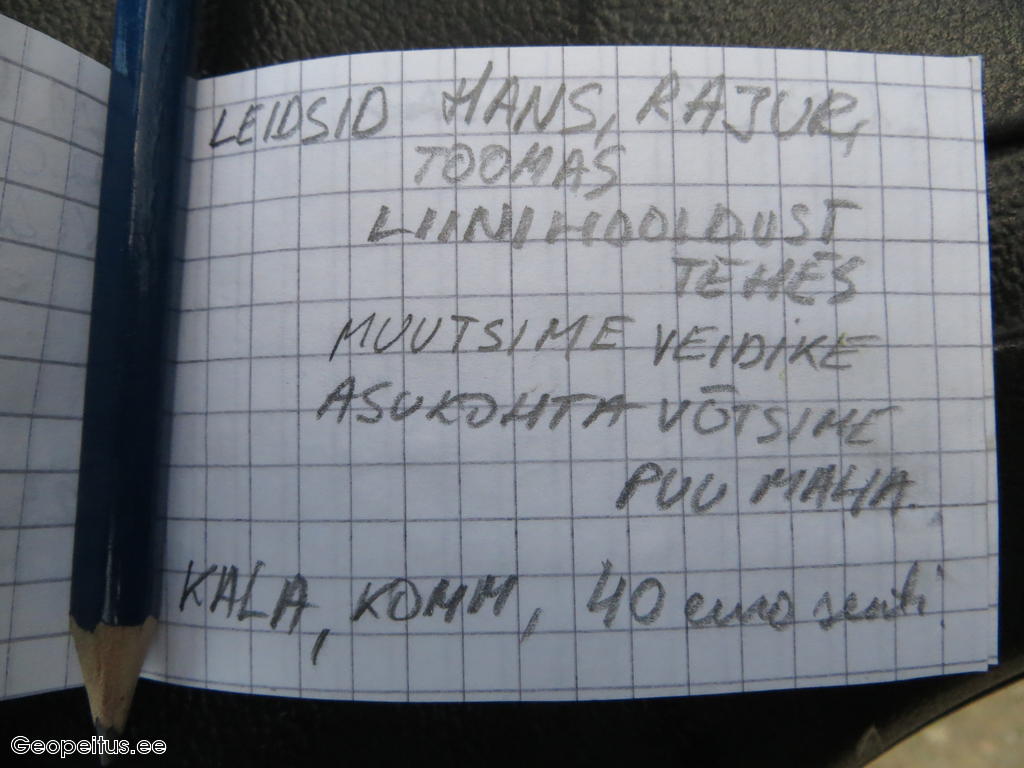 LEIDSID HANS, RAJUR,
TOOMAS
LIINIHOOLDUST
TEHES
MUUTSIME VEIDIKE
ASUKOHTA VÕTSIME
PUU MAHA.
KALA, KOMM, 40 euro senti
Geopeitus.ee